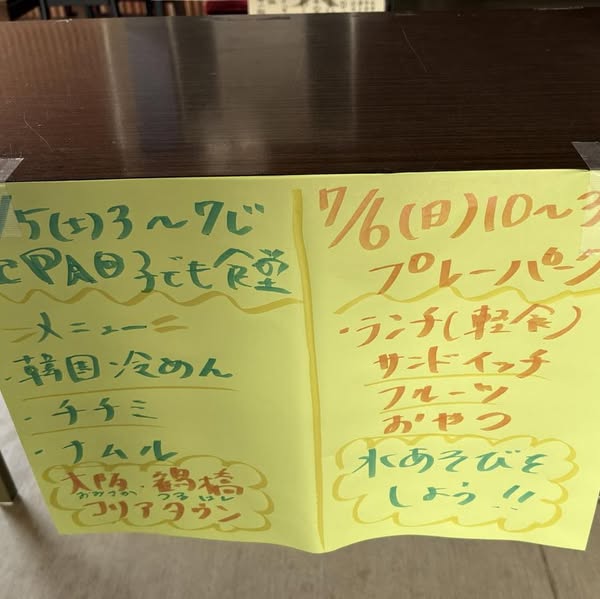 /5(土)3〜7じ
PAO子ども食堂
メニュー
・韓国冷めん
・チヂミ
・ナムル
大阪・鶴橋
おおさか つるはし
コリアタウン
7/6(日)10〜3
プレーパーク
・ランチ(軽食)
サンドイッチ
フルーツ
おやつ
水あそびを
しよう!!